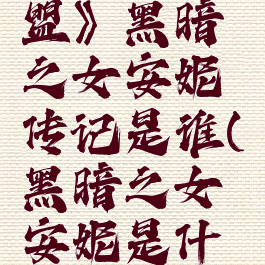 盟》黑暗
之女安妮
传记是谁(
黑暗之女
安妮是什